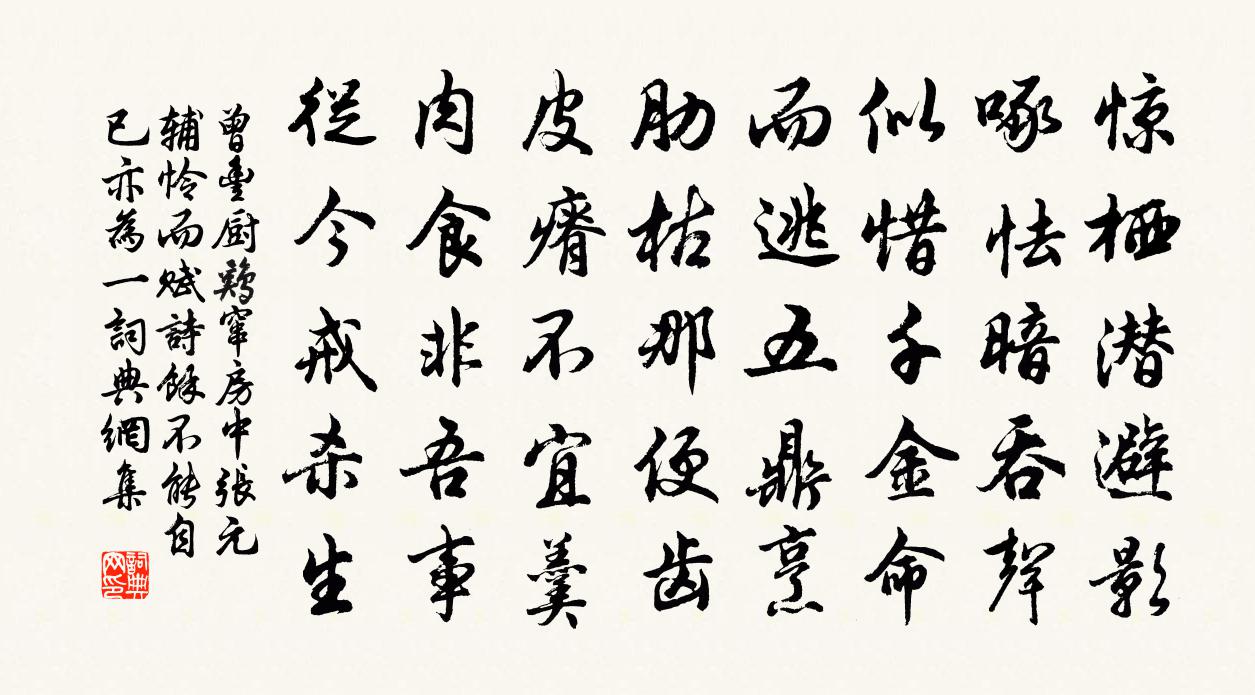 惊栖潜避影
啄怯暗吞声
似惜千金命
而逃五鼎烹
肋枯那便齿
皮瘠不宜羹
肉食非吾事
從今戒杀生
曾豊厨鷄窜房中張元
辅怜而赋詩餘不能自
已亦為一詞典網集
詞典网印